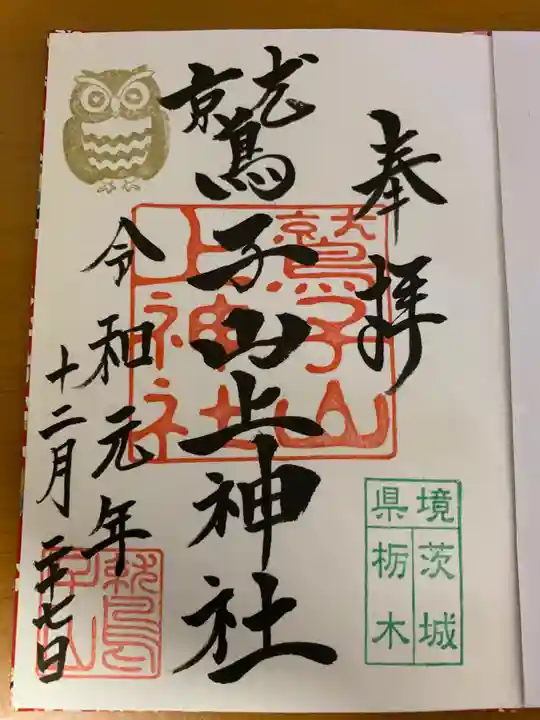 奉拝
鷲子山上神社
鷲子山
上神社
令和元年
十二月二十七日
県境
茨城
栃木